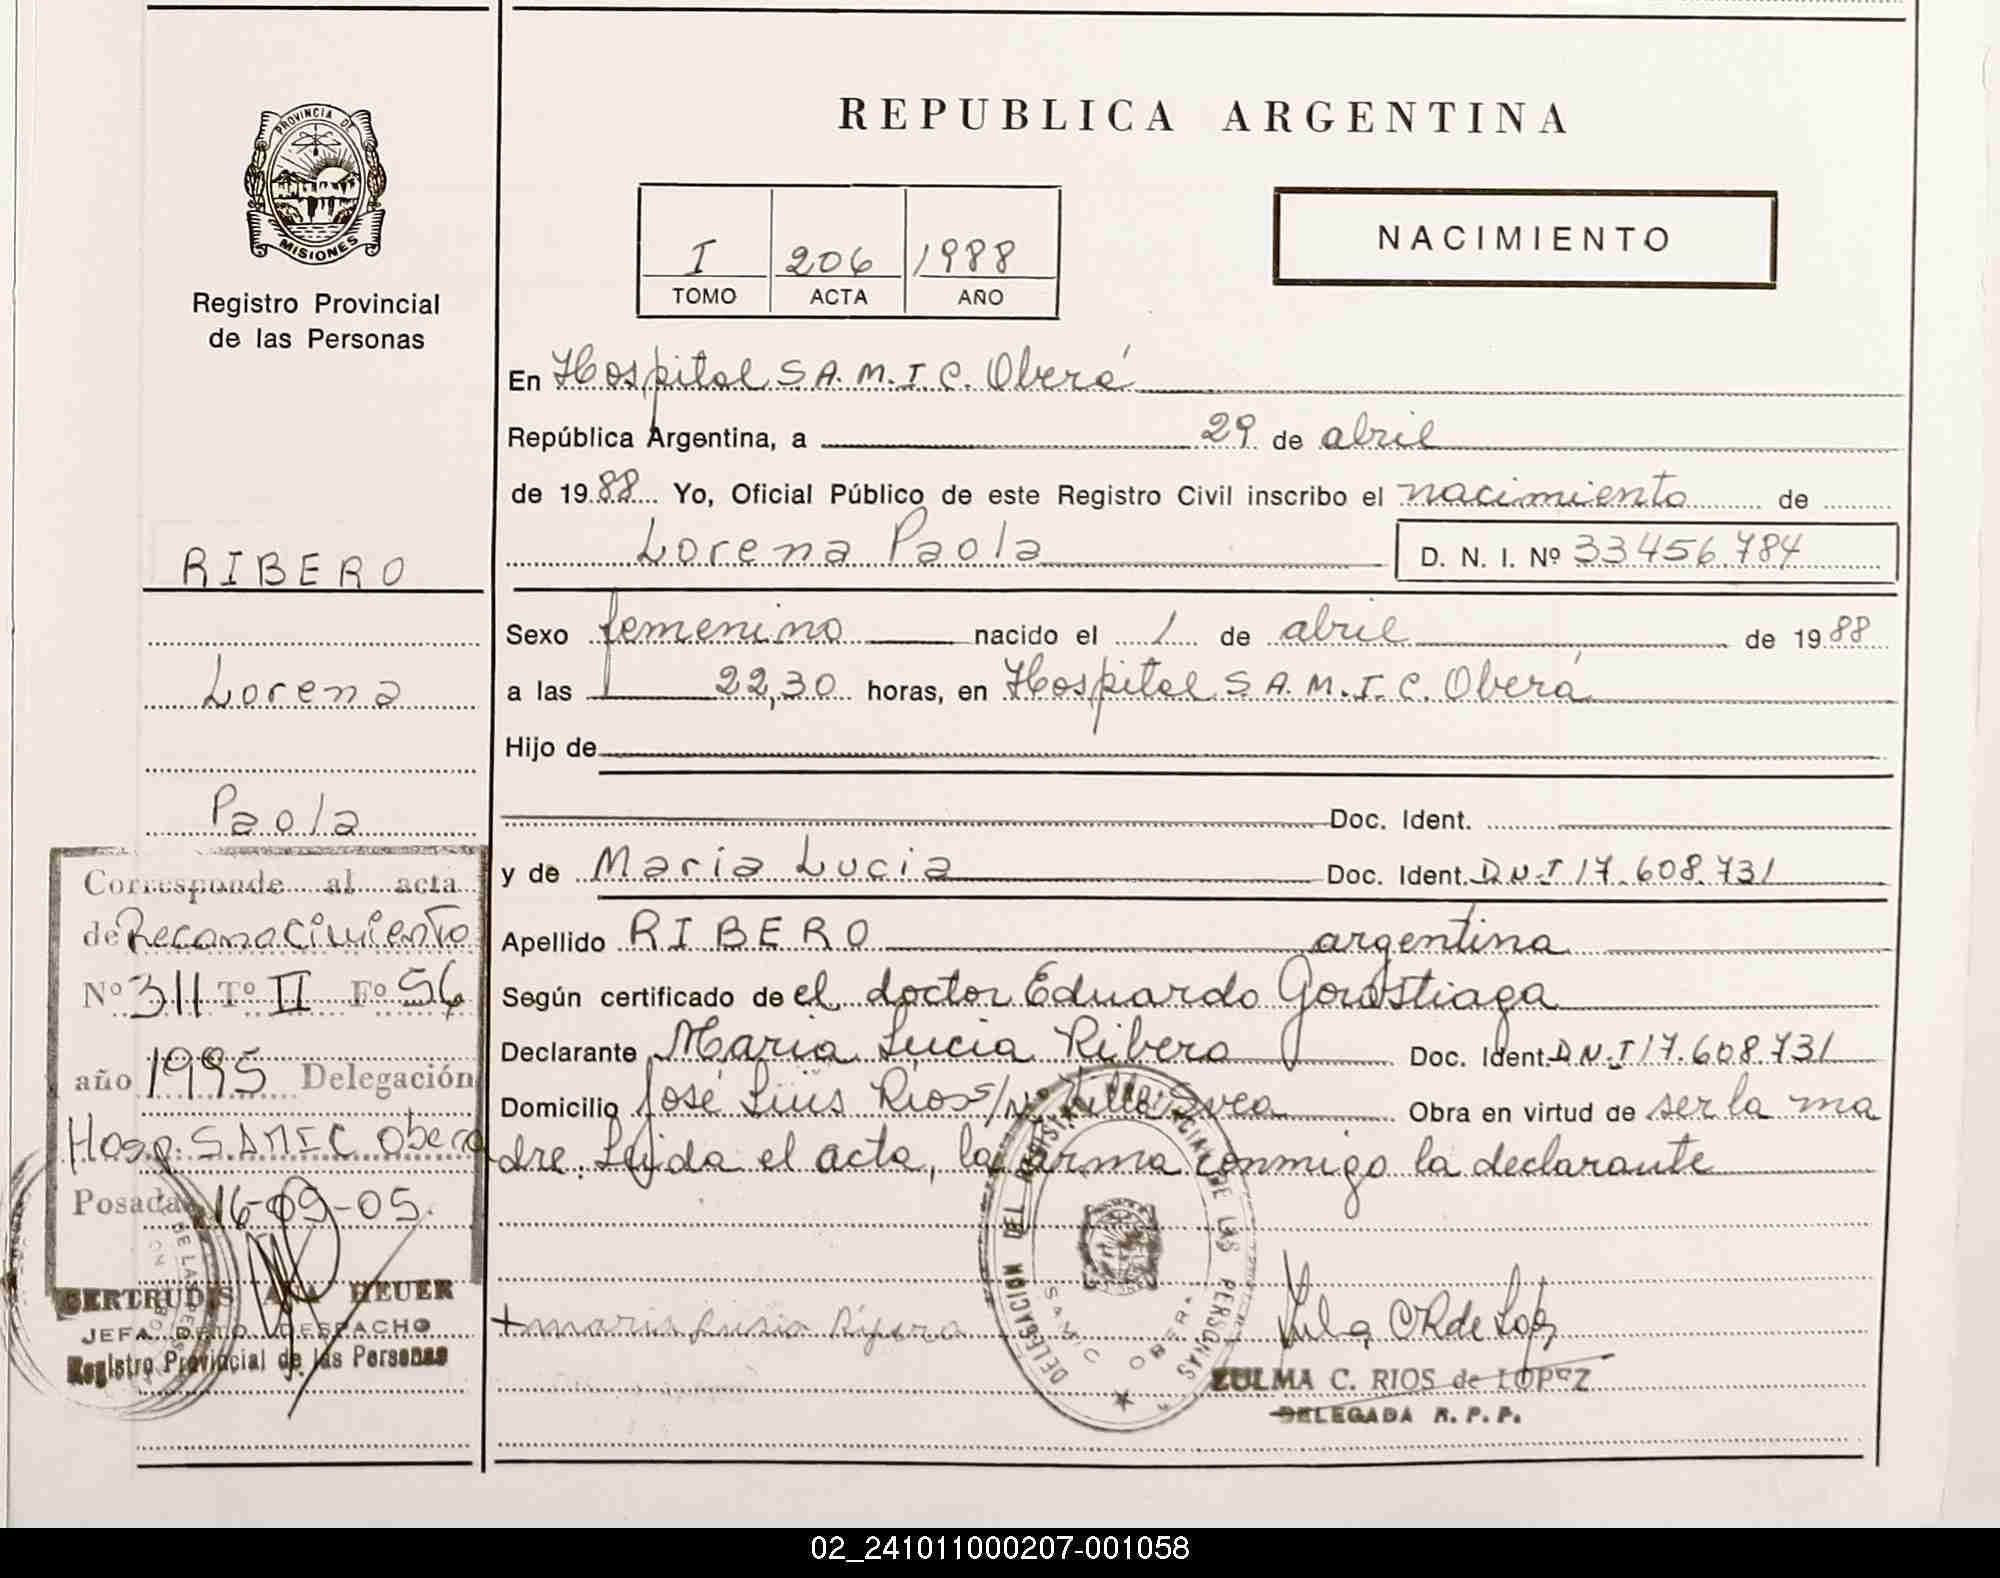 PROVINCIA DE
MISIONES
Registro Provincial
de las Personas
RIBERO
Lorena
Paola
Corresponde al acta
de Reconocimiento
Nº 311 Tº II Fº 56
año 1995 Delegación
Hosp. SAMIC Oberá
Posadas 16-09-05.
GERTRUDIS HEUER
JEFA DPTO. DESPACHO
Registro Provincial de las Personas
REPUBLICA ARGENTINA
I 206 1988
TOMO ACTA AÑO
NACIMIENTO
En Hospital S.A.M.I.C. Oberá
República Argentina, a 29 de abril
de 1988 Yo, Oficial Público de este Registro Civil inscribo el nacimiento de
Lorena Paola D. N. I. Nº 33456.784
Sexo femenino nacido el 1 de abril de 1988
a las 22,30 horas, en Hospital S.A.M.I.C. Oberá
Hijo de
Doc. Ident.
y de Maria Lucia Doc. Ident. D.N.I 17.608.731
Apellido RIBERO argentina
Según certificado de el doctor Eduardo Gorostiaga
Declarante Maria Lucia Ribero Doc. Ident. D.N.I 17.608.731
Domicilio José Luis Rios S/Nº Villa Svea Obra en virtud de ser la ma
dre. Leida el acta, la firma conmigo la declarante
DELEGACION DEL REGISTRO PROVINCIAL DE LAS PERSONAS
SAMIC OBERA
ZULMA C. RIOS de LOPEZ
DELEGADA R. P. P.
02_241011000207-001058